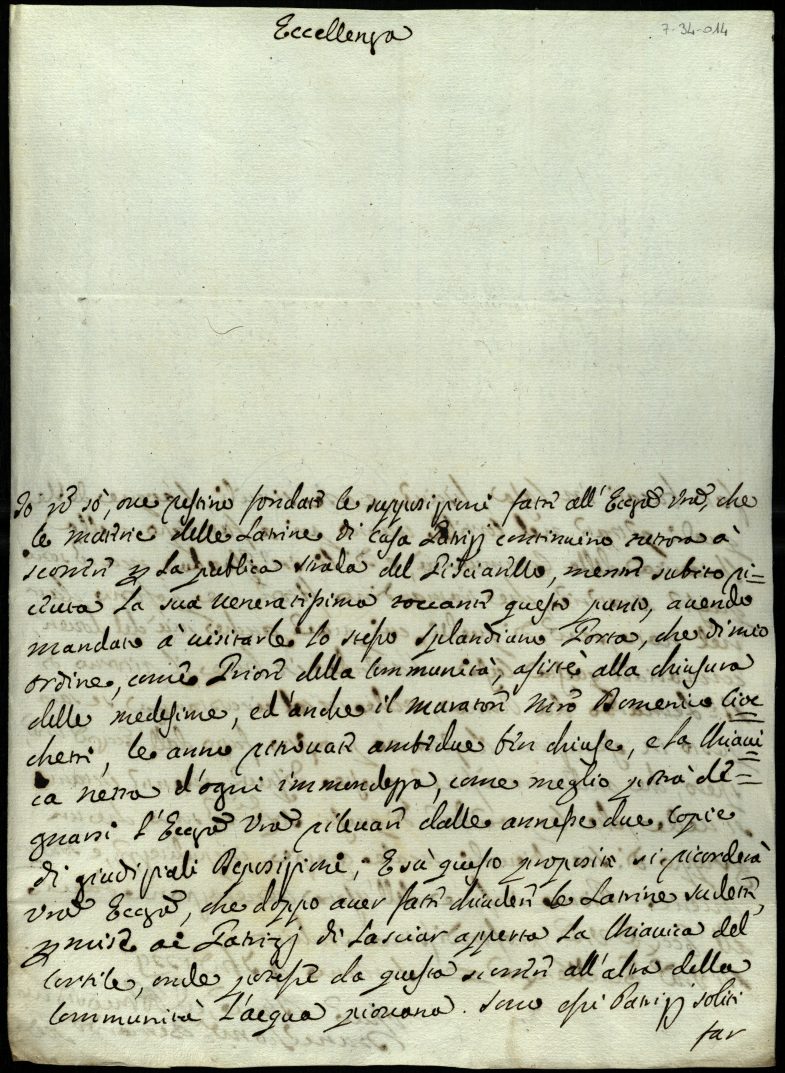 Eccellenza
7-34-014
Io nō sò, ove restino fondate le supposizioni fatte all' Eccza Vra, che
le materie delle Latrine di Casa Patrizj continuino tuttora à
scorrere p la publica strada del Pisciarello, mentre subito ri=
cevuta la sua veneratissima toccante questo punto, avendo
mandato à visitarle lo stesso Splandiano Porta, che di mio
ordine, come Priore della Communità, assistè alla chiusura
delle medesime, ed anche il muratore Mro Domenico Cioc=
chetti, le anno ritrovate ambedue ben chiuse, e la Chiavi=
ca netta d'ogni immondezza, come meglio potrà de=
gnarsi l'Eccza Vra rilevare dalle annesse due copie
di giudiziali Deposizioni; E sù questo proposito si ricorderà
Vra Eccza, che doppo aver fatte chiudere le Latrine sudette,
pmise ai Patrizj di lasciar apperta la Chiavica del
Cortile, onde potesse da questa scorrere all'altra della
Communità l'acqua piovana. Sono essi Patrizj soliti
far